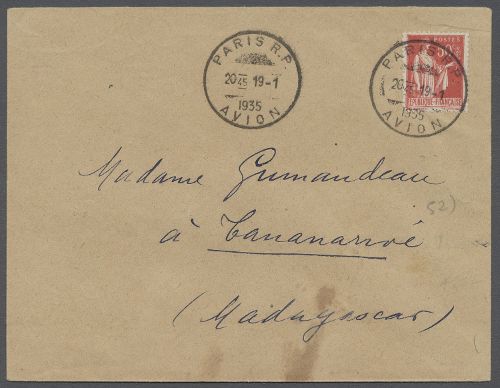 PARIS R.P
20 45 19-1
1935
AVION
POSTES
PARIS R.P
20 45 19-1
1935
AVION
REPUBLIQUE-FRANÇAISE
Madame Grimandeau
52)
à Tananarive
(Madagascar)